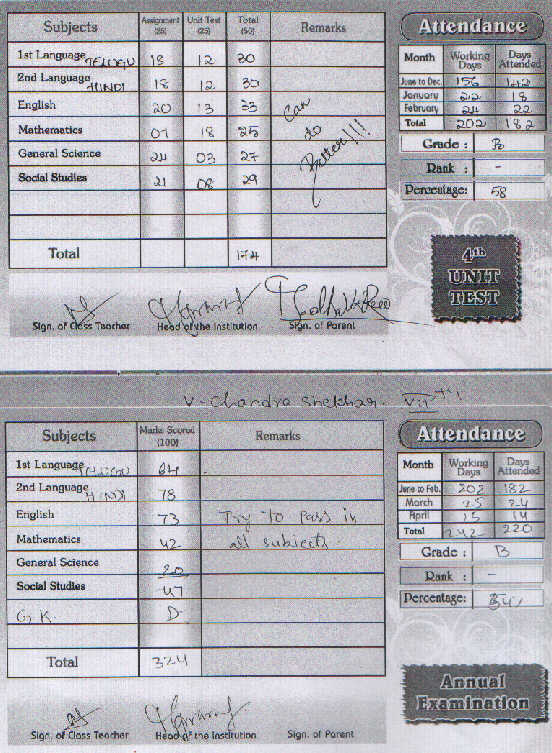 Subjects Assignment (25) Unit Test (25) Total (50) Remarks
1st Language TELUGU 18 12 30
2nd Language HINDI 18 12 30
English 20 13 33 Can
Mathematics 07 18 25 do
General Science 24 03 27 Better!!!
Social Studies 21 08 29
Total 174
Sign. of Class Teacher Head of the Institution Sign. of Parent
Attendance
Month Working Days Days Attended
June to Dec. 156 142
January 22 18
February 24 22
Total 202 182
Grade :
Rank : -
Percentage: 58
4th
UNIT
TEST
V. Chandra Shekhar. VII
Subjects Marks Scored (100) Remarks
1st Language TELUGU 64
2nd Language HINDI 78
English 73 Try to pass in
Mathematics 42 all subjects.
General Science 20
Social Studies 47
G.K. D
Total 324
Sign. of Class Teacher Head of the Institution Sign. of Parent
Attendance
Month Working Days Days Attended
June to Feb. 202 182
March 25 24
April 15 14
Total 242 220
Grade : B
Rank : -
Percentage: 54%
Annual
Examination